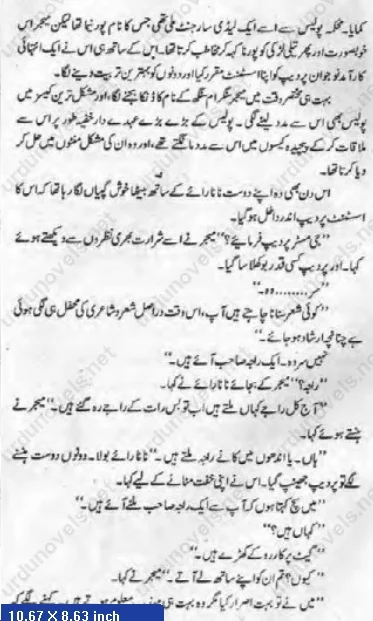 کمایا۔ محکمہ پولیس سے اسے ایک لیڈی سارجنٹ ملی تھی جس کا نام پورنیما تھا لیکن میجر اس
خوبصورت اور پھرتیلی لڑکی کو پورنا کہہ کر مخاطب کرتا تھا۔ اس کے ساتھ ہی اس نے ایک انتہائی
کارآمد نوجوان پردیپ کو اپنا اسسٹنٹ مقرر کیا اور دونوں کو بہترین تربیت دینے لگا۔
بہت ہی مختصر وقت میں میجر سنگرام سنگھ کے نام کا ڈنکا بجنے لگا، اور مشکل ترین کیسز میں
پولیس بھی اس سے مدد لینے لگی۔ پولیس کے بڑے بڑے عہدے دار خفیہ طور پر اس سے
ملاقات کر کے پیچیدہ کیسوں میں اس سے مدد مانگتے تھے، اور وہ ان کی مشکل منٹوں میں حل کر
دیا کرتا تھا۔
اس دن بھی وہ اپنے دوست نانا رائے کے ساتھ بیٹھا خوش گپیاں لگا رہا تھا کہ اس کا
اسسٹنٹ پردیپ اندر داخل ہو گیا۔
"جی مسٹر پردیپ فرمائیے؟" میجر نے اسے شرارت بھری نظروں سے دیکھتے ہوئے
کہا۔ اور پردیپ کسی قدر بوکھلا سا گیا۔
"سر........ وہ۔"
"کوئی شعر سنانا چاہتے ہیں آپ، اس وقت دراصل شعر و شاعری کی محفل ہی لگی ہوئی
ہے چنانچہ ارشاد ہو جائے۔"
نہیں سر وہ۔ ایک راجہ صاحب آئے ہیں۔"
"راجہ؟" میجر کے بجائے نانا رائے نے کہا۔
"آج کل راجے کہاں ملتے ہیں اب تو بس رات کے راجے رہ گئے ہیں۔" میجر نے
ہنستے ہوئے کہا۔
"ہاں۔ یا اندھوں میں کانے راجہ ملتے ہیں۔" نانا رائے بولا۔ دونوں دوست ہنسنے
لگے تو پردیپ جھینپ گیا۔ اس نے اپنی خفت مٹانے کے لیے کہا۔
"میں سچ کہتا ہوں کہ آپ سے ایک راجہ صاحب ملنے آئے ہیں۔"
"کہاں ہیں؟"
"گیٹ پر کار روکے کھڑے ہیں۔"
"کیوں؟ تم ان کو اپنے ساتھ لے آتے۔" میجر نے کہا۔
"میں نے تو بہت اصرار کیا مگر وہ بہت ہی معلوم ہوتے ہیں۔ کہنے لگے کہ
urdunovels.net
10.67 X 8.63 inch